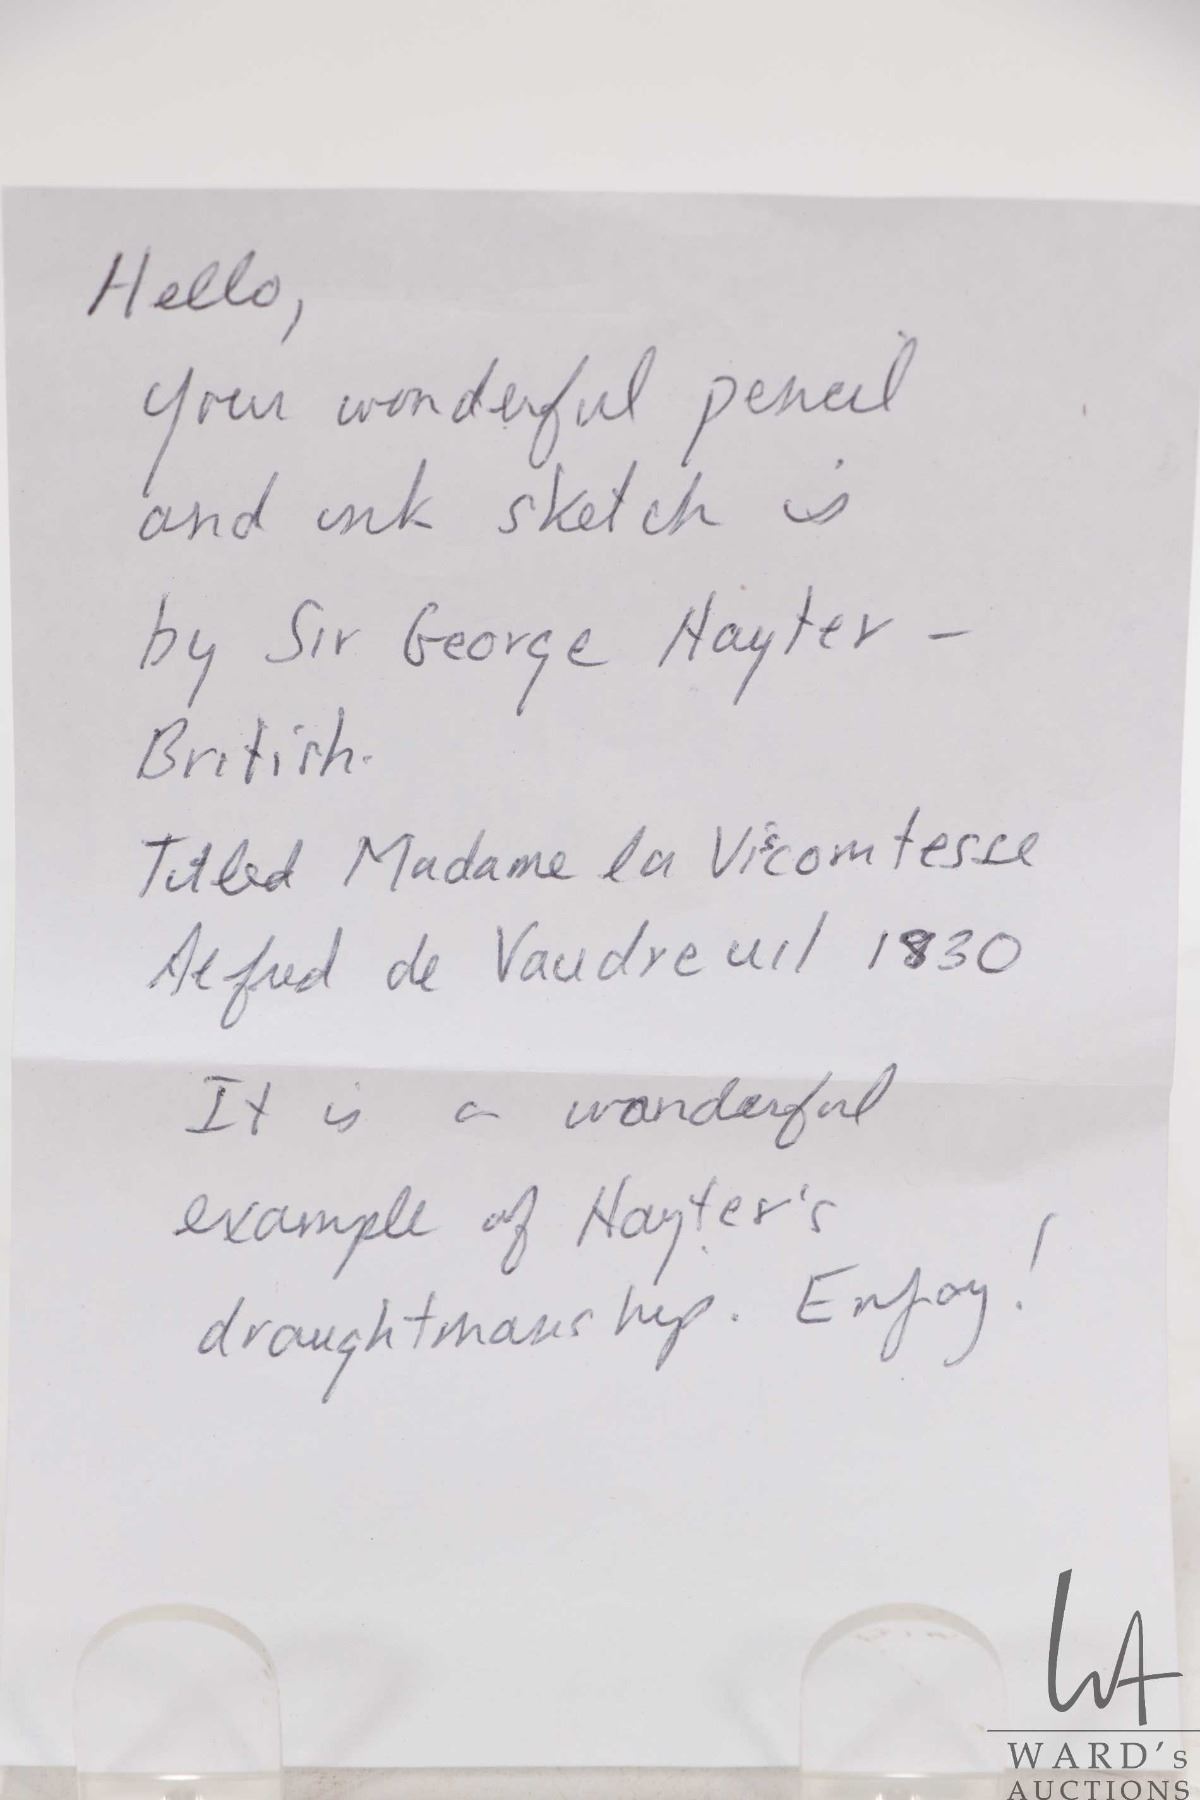 Hello,
Your wonderful pencil
and ink sketch is
by Sir George Hayter -
British.
Titled Madame la Vicomtesse
Alfred de Vaudreuil 1830
It is a wonderful
example of Hayter's
draughtmanship. Enjoy!
WA
WARD's
AUCTIONS